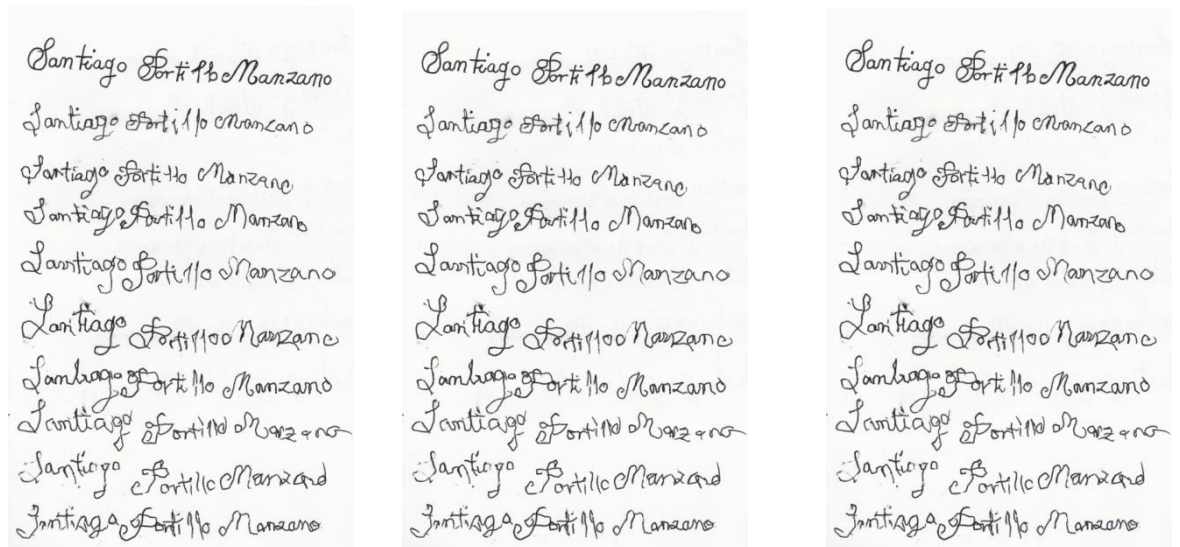 Santiago Portillo Manzano
Santiago Portillo Manzano
Santiago Portillo Manzano
Santiago Portillo Manzano
Santiago Portillo Manzano
Santiago Portilloo Manzano
Santiago Portillo Manzano
Santiago Portillo Manzano
Santiago Portillo Manzano
Santiago Portillo Manzano
Santiago Portillo Manzano
Santiago Portillo Manzano
Santiago Portillo Manzano
Santiago Portillo Manzano
Santiago Portillo Manzano
Santiago Portilloo Manzano
Santiago Portillo Manzano
Santiago Portillo Manzano
Santiago Portillo Manzano
Santiago Portillo Manzano
Santiago Portillo Manzano
Santiago Portillo Manzano
Santiago Portillo Manzano
Santiago Portillo Manzano
Santiago Portillo Manzano
Santiago Portilloo Manzano
Santiago Portillo Manzano
Santiago Portillo Manzano
Santiago Portillo Manzano
Santiago Portillo Manzano